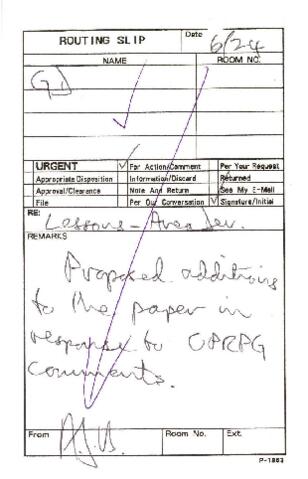 ROUTING SLIP
Date 6/24
NAME ROOM NO.
GJ
URGENT ✓ For Action/Comment Per Your Request
Appropriate Disposition Information/Discard Returned
Approval/Clearance Note And Return See My E-Mail
File Per Our Conversation ✓ Signature/Initial
RE: Lessons - Area Dev.
REMARKS
Proposed additions
to the paper in
response to OPRPG
comments.
From Room No. Ext.
P-1863